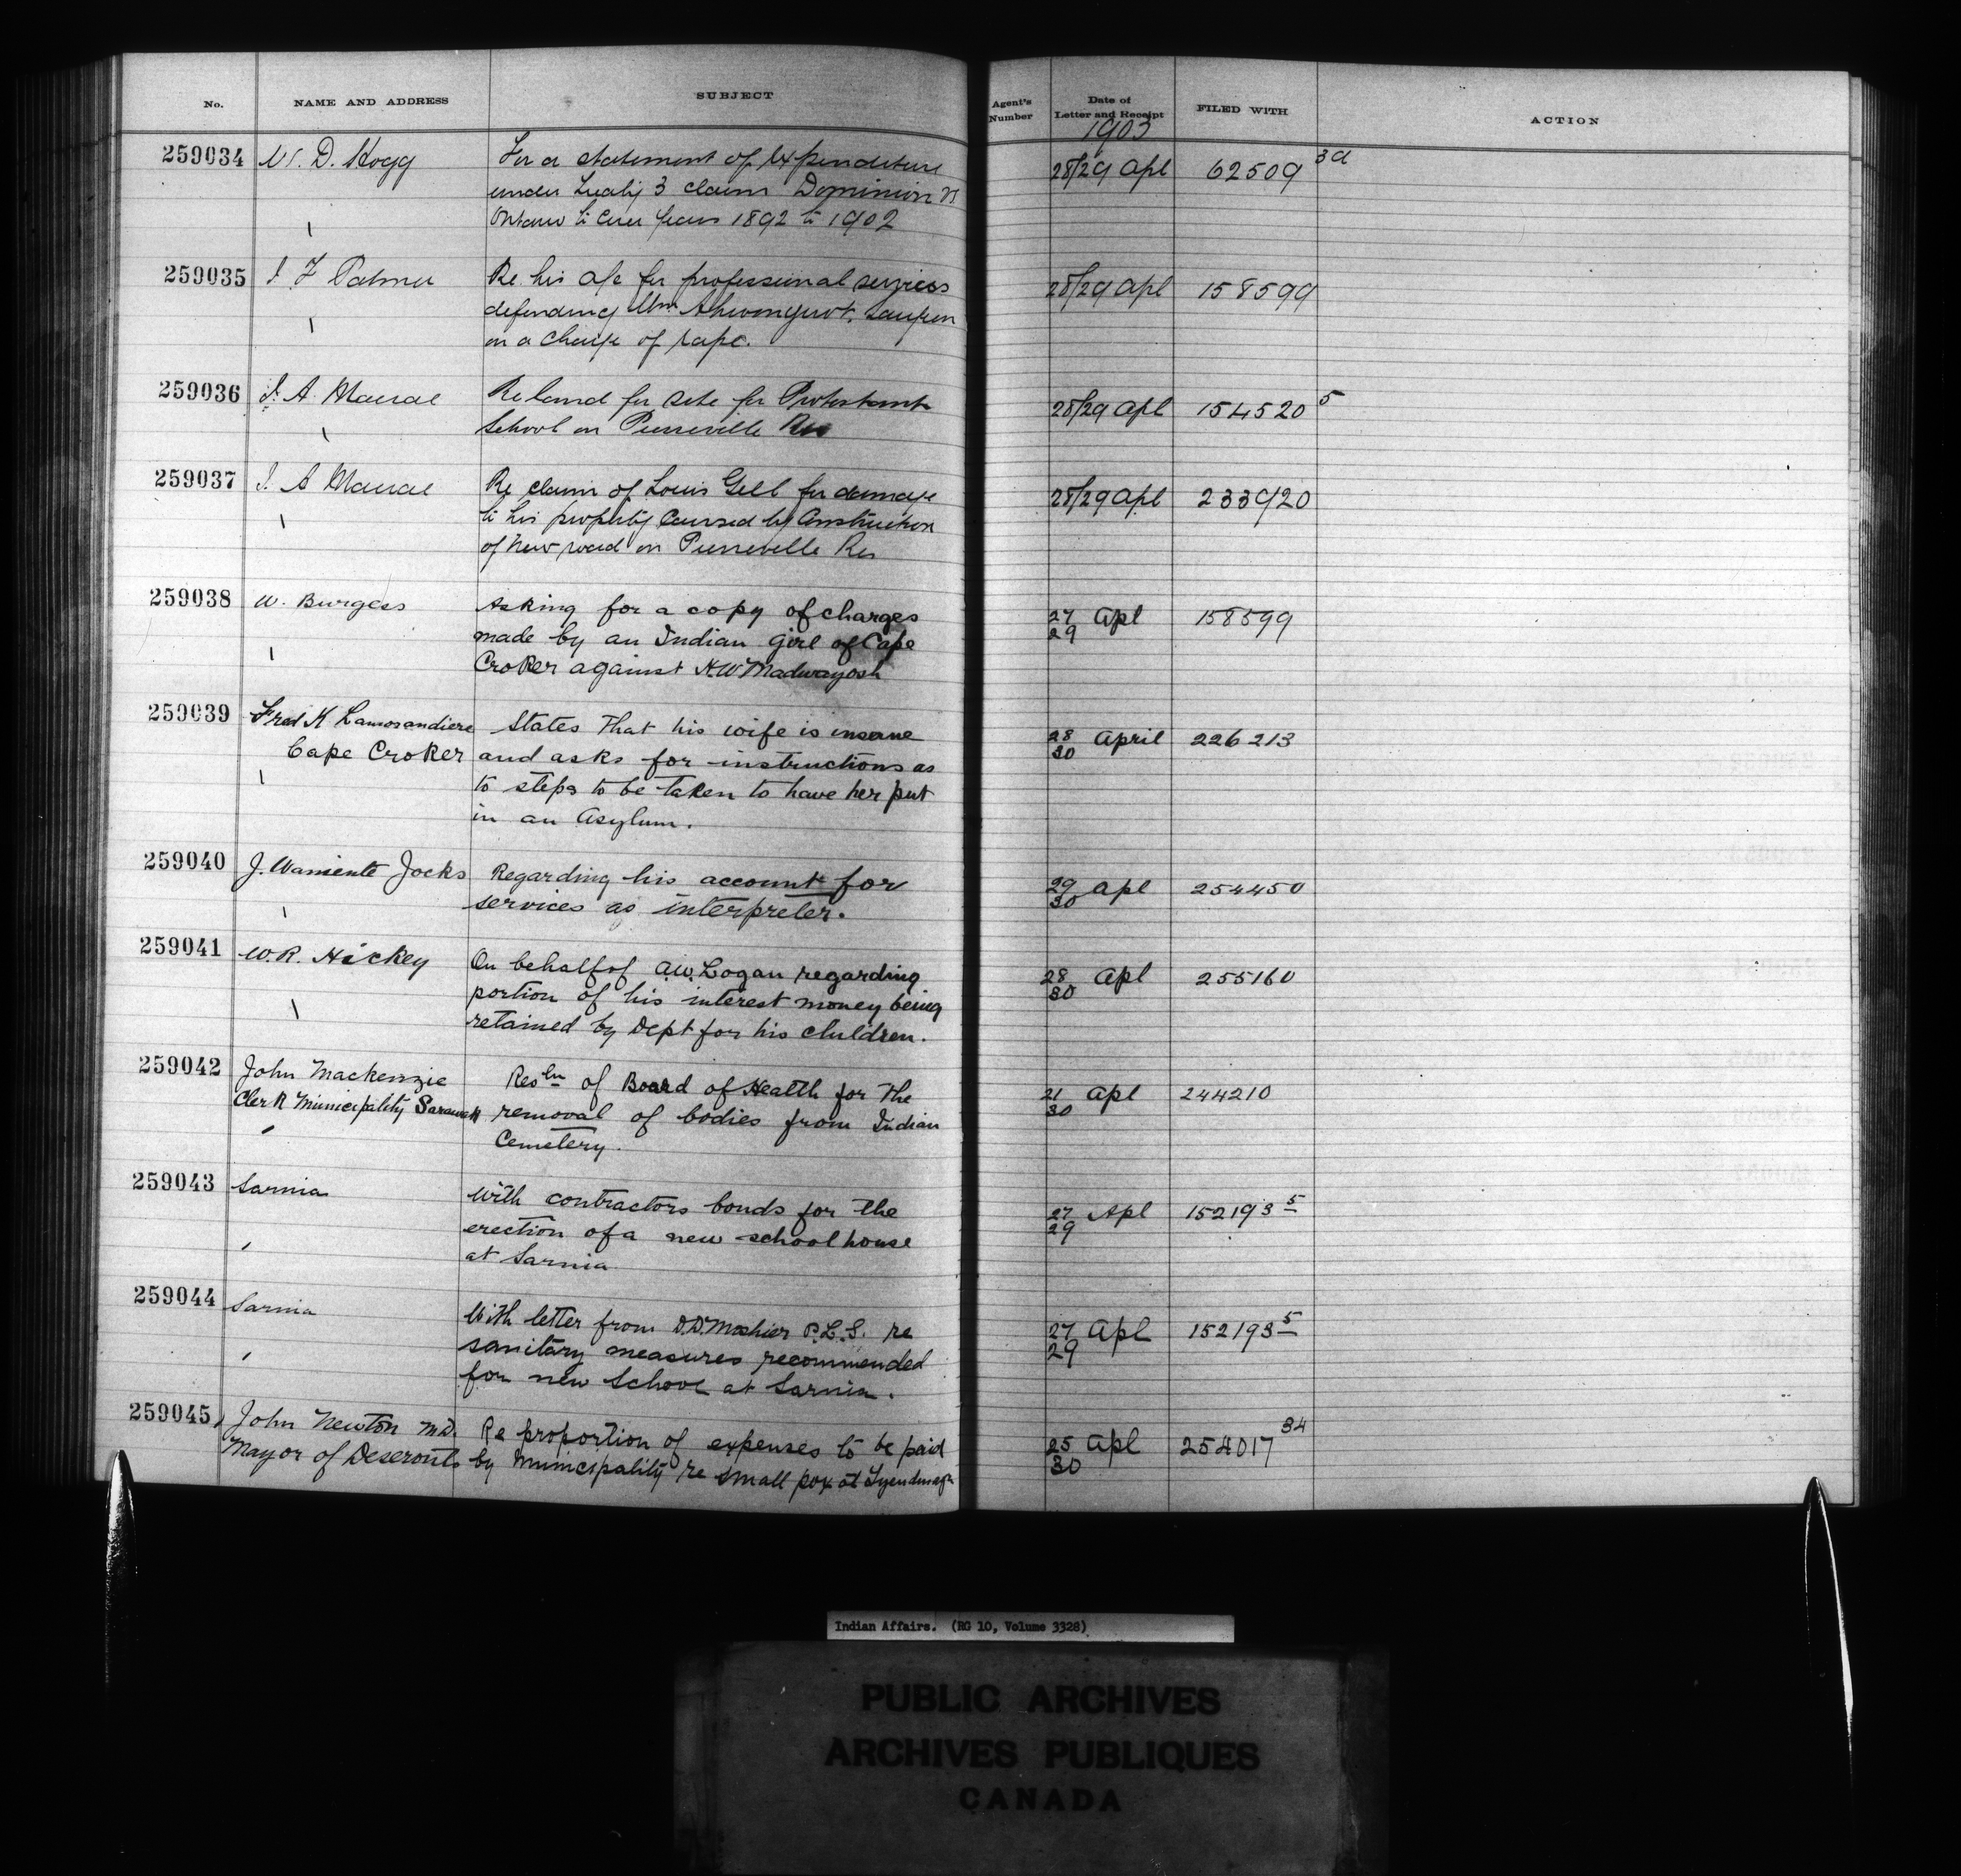 No.
NAME AND ADDRESS
SUBJECT
Agent's Number
Date of Letter and Receipt
FILED WITH
ACTION
1903
259034
W. D. Hogg
For a statement of expenditure
under Treaty 3 claim Dominion vs
Ontario to cover years 1892 to 1902
28/29 Apl
62509 3a
259035
J. F. Palmer
Re his a/c for professional services
defending Wm Saugeen
on a charge of rape.
28/29 Apl
158599
259036
J. A. Macrae
Re land for site for Protestant
School on Pierreville Res
28/29 Apl
154520 5
259037
J. A. Macrae
Re claim of Louis Gill for damage
to his property caused by construction
of new road on Pierreville Res
28/29 Apl
233920
259038
W. Burgess
Asking for a copy of charges
made by an Indian girl of Cape
Croker against H.W. Madwayosh
27/29 Apl
158599
259039
Fred K Lamorandiere
Cape Croker
States that his wife is insane
and asks for instructions as
to steps to be taken to have her put
in an Asylum.
28/30 April
226213
259040
J. Waniente Jocks
Regarding his account for
services as interpreter.
29/30 Apl
254450
259041
W.R. Hickey
On behalf of A.W. Logan regarding
portion of his interest money being
retained by Dept for his children.
28/30 Apl
255160
259042
John Mackenzie
Clerk Municipality Sarawak
Resln of Board of Health for the
removal of bodies from Indian
Cemetery.
21/30 Apl
244210
259043
Sarnia
With contractors bonds for the
erection of a new school house
at Sarnia
27/29 Apl
152193 5
259044
Sarnia
With letter from D.D. Moshier P.L.S. re
sanitary measures recommended
for new School at Sarnia.
27/29 Apl
152193 5
259045
John Newton M.D.
Mayor of Deseronto
Re proportion of expenses to be paid
by Municipality re small pox at Tyendinaga
25/30 Apl
254017 34
Indian Affairs. (RG 10, Volume 3328)
PUBLIC ARCHIVES
ARCHIVES PUBLIQUES
CANADA